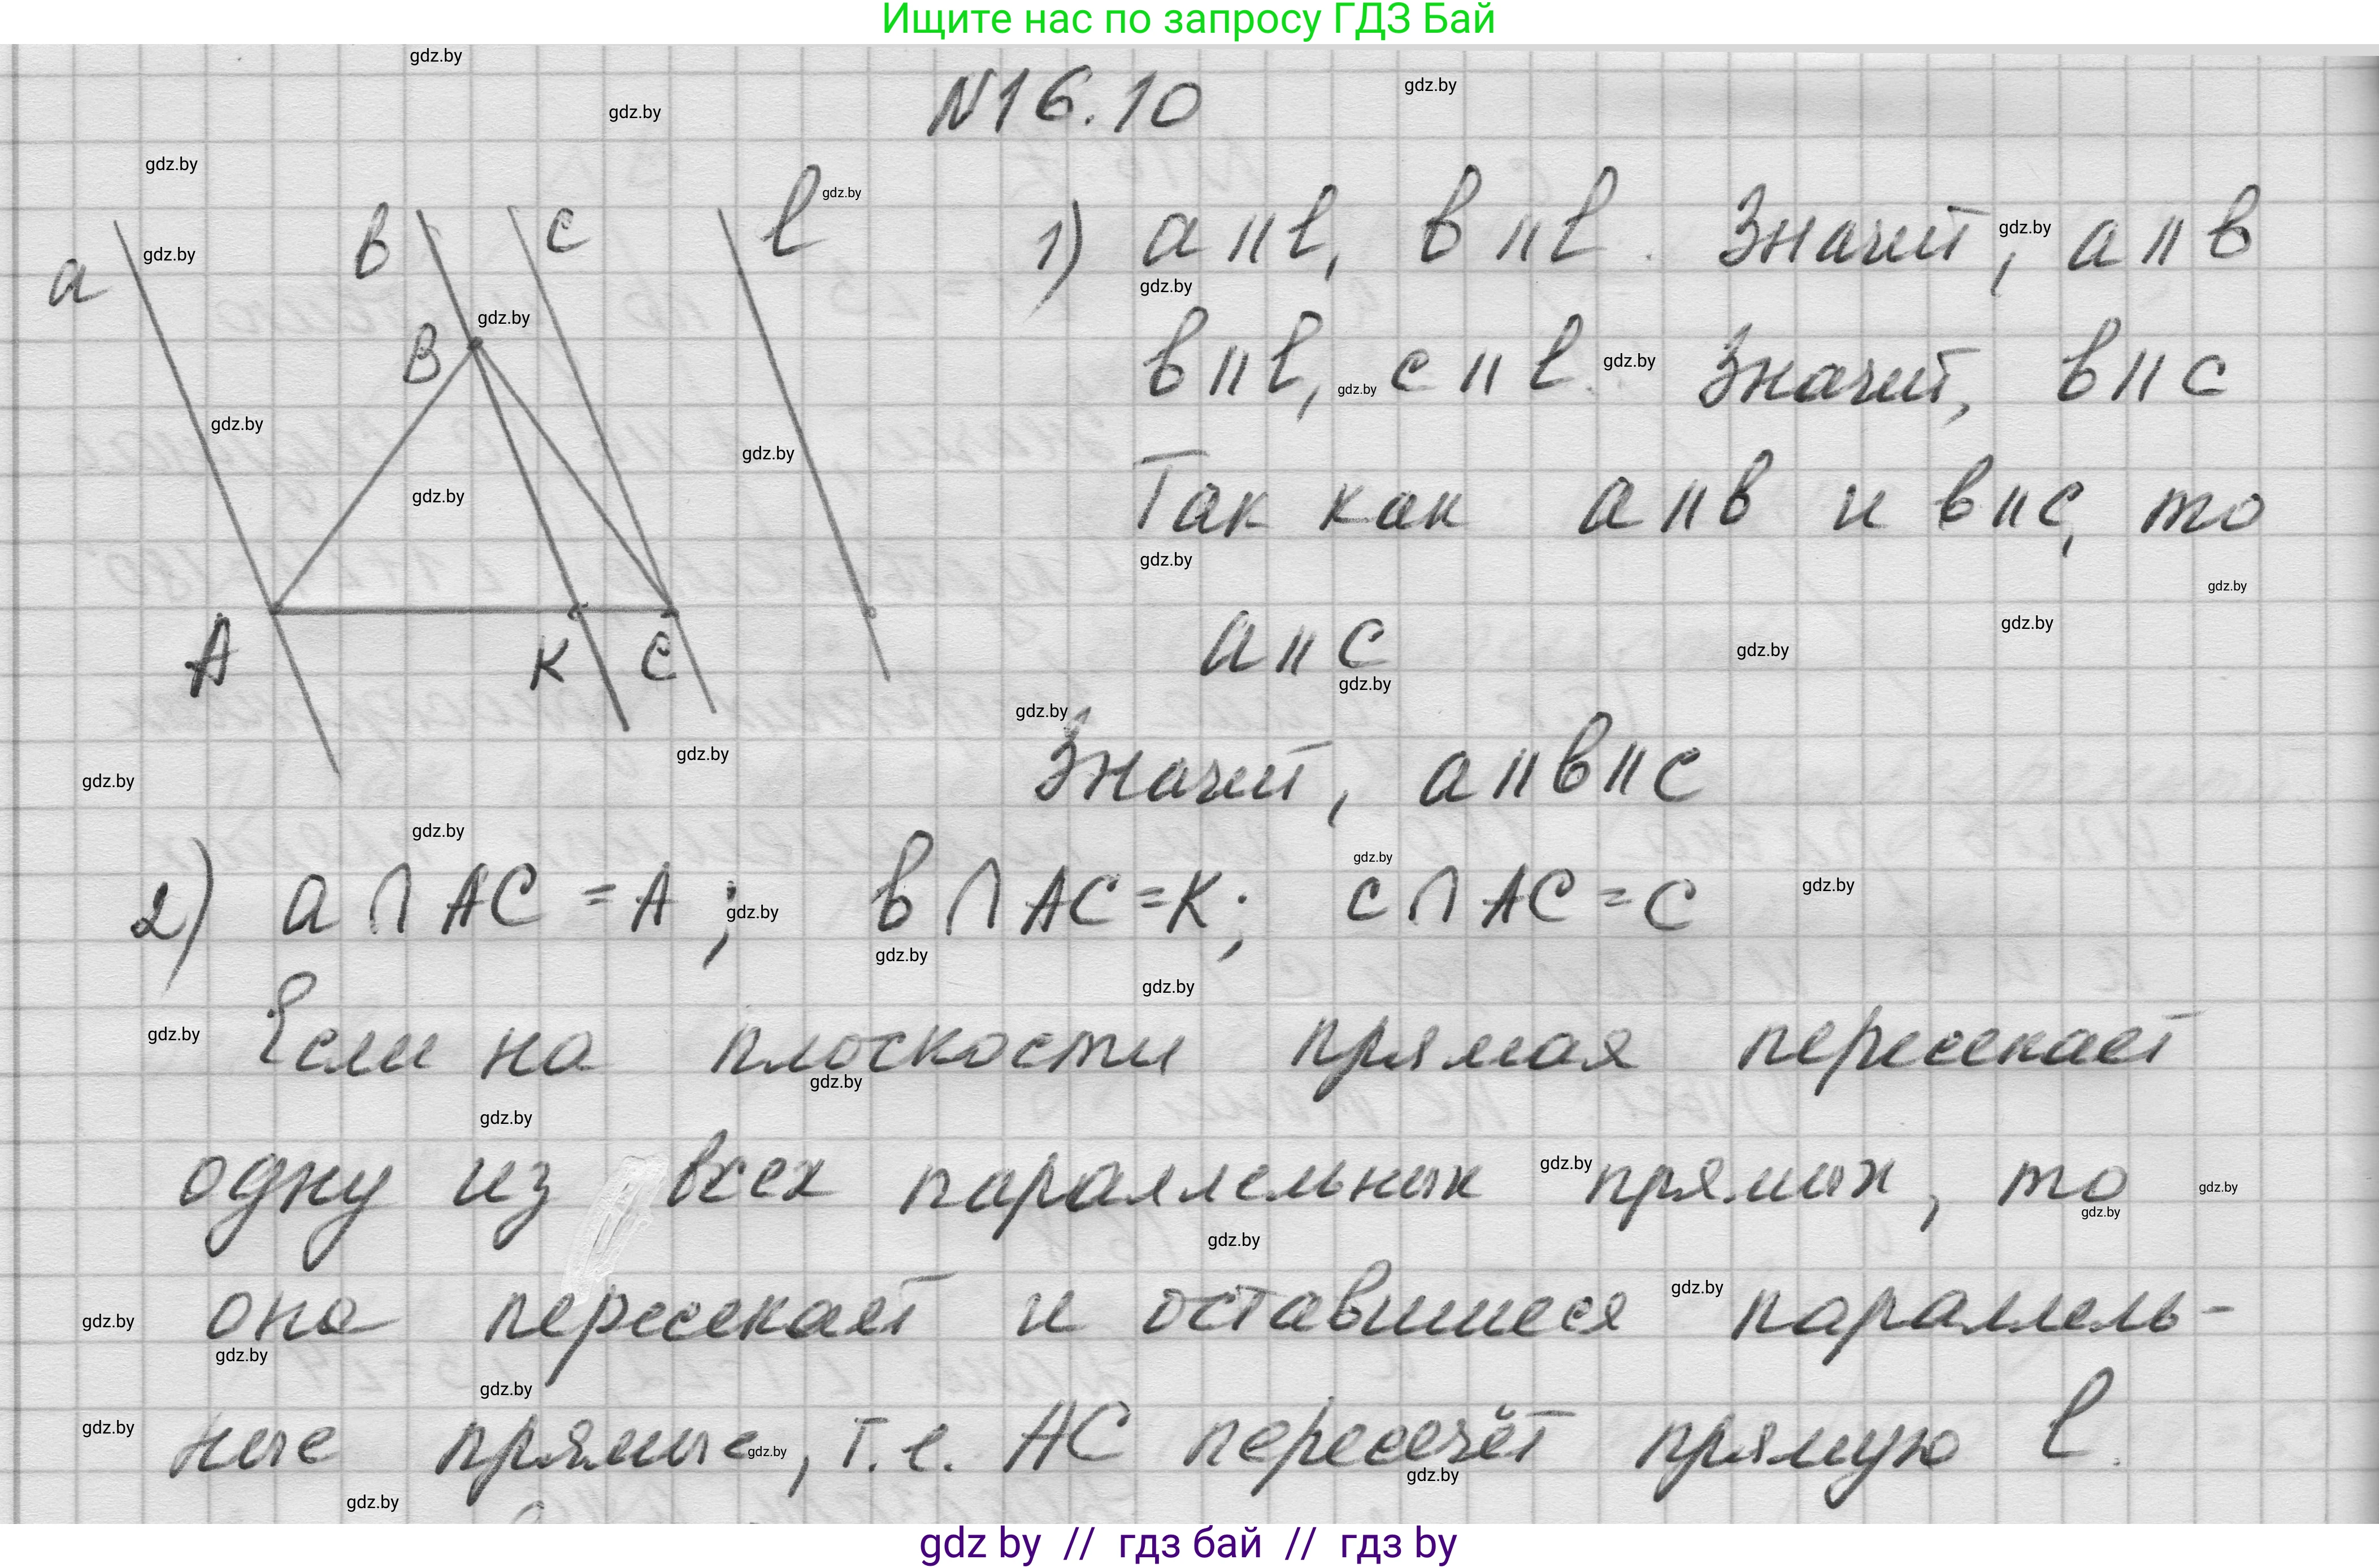 Ищите нас по запросу ГДЗ Бай
N16.10
1) a || l, b || l. Значит, a || b
b || l, c || l. Значит, b || c
Так как a || b и b || c, то
a || c
Значит, a || b || c
a
b
c
l
B
A
K
C
2) a ∩ AC = A; b ∩ AC = K; c ∩ AC = C
Если на плоскости прямая пересекает
одну из всех параллельных прямых, то
она пересекает и оставшиеся параллель-
ные прямые, т.е. AC пересечёт прямую l.
gdz.by
gdz by // гдз бай // гдз by